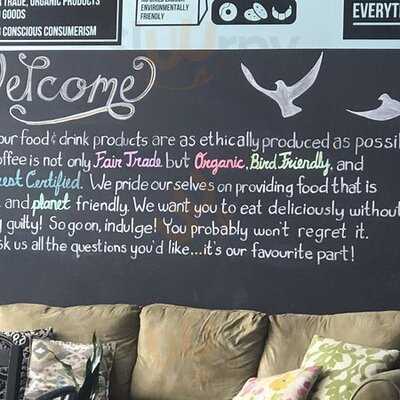 T TRADE, ORGANIC PRODUCTS
GOODS
CONSCIOUS CONSUMERISM
ENVIRONMENTALLY
FRIENDLY
EVERYT
Welcome
our food & drink products are as ethically produced as possib
offee is not only Fair Trade but Organic, Bird Friendly, and
est Certified. We pride ourselves on providing food that is
and planet friendly. We want you to eat deliciously without
guilty! So go on, indulge! You probably won't regret it.
sk us all the questions you'd like...it's our favourite part!